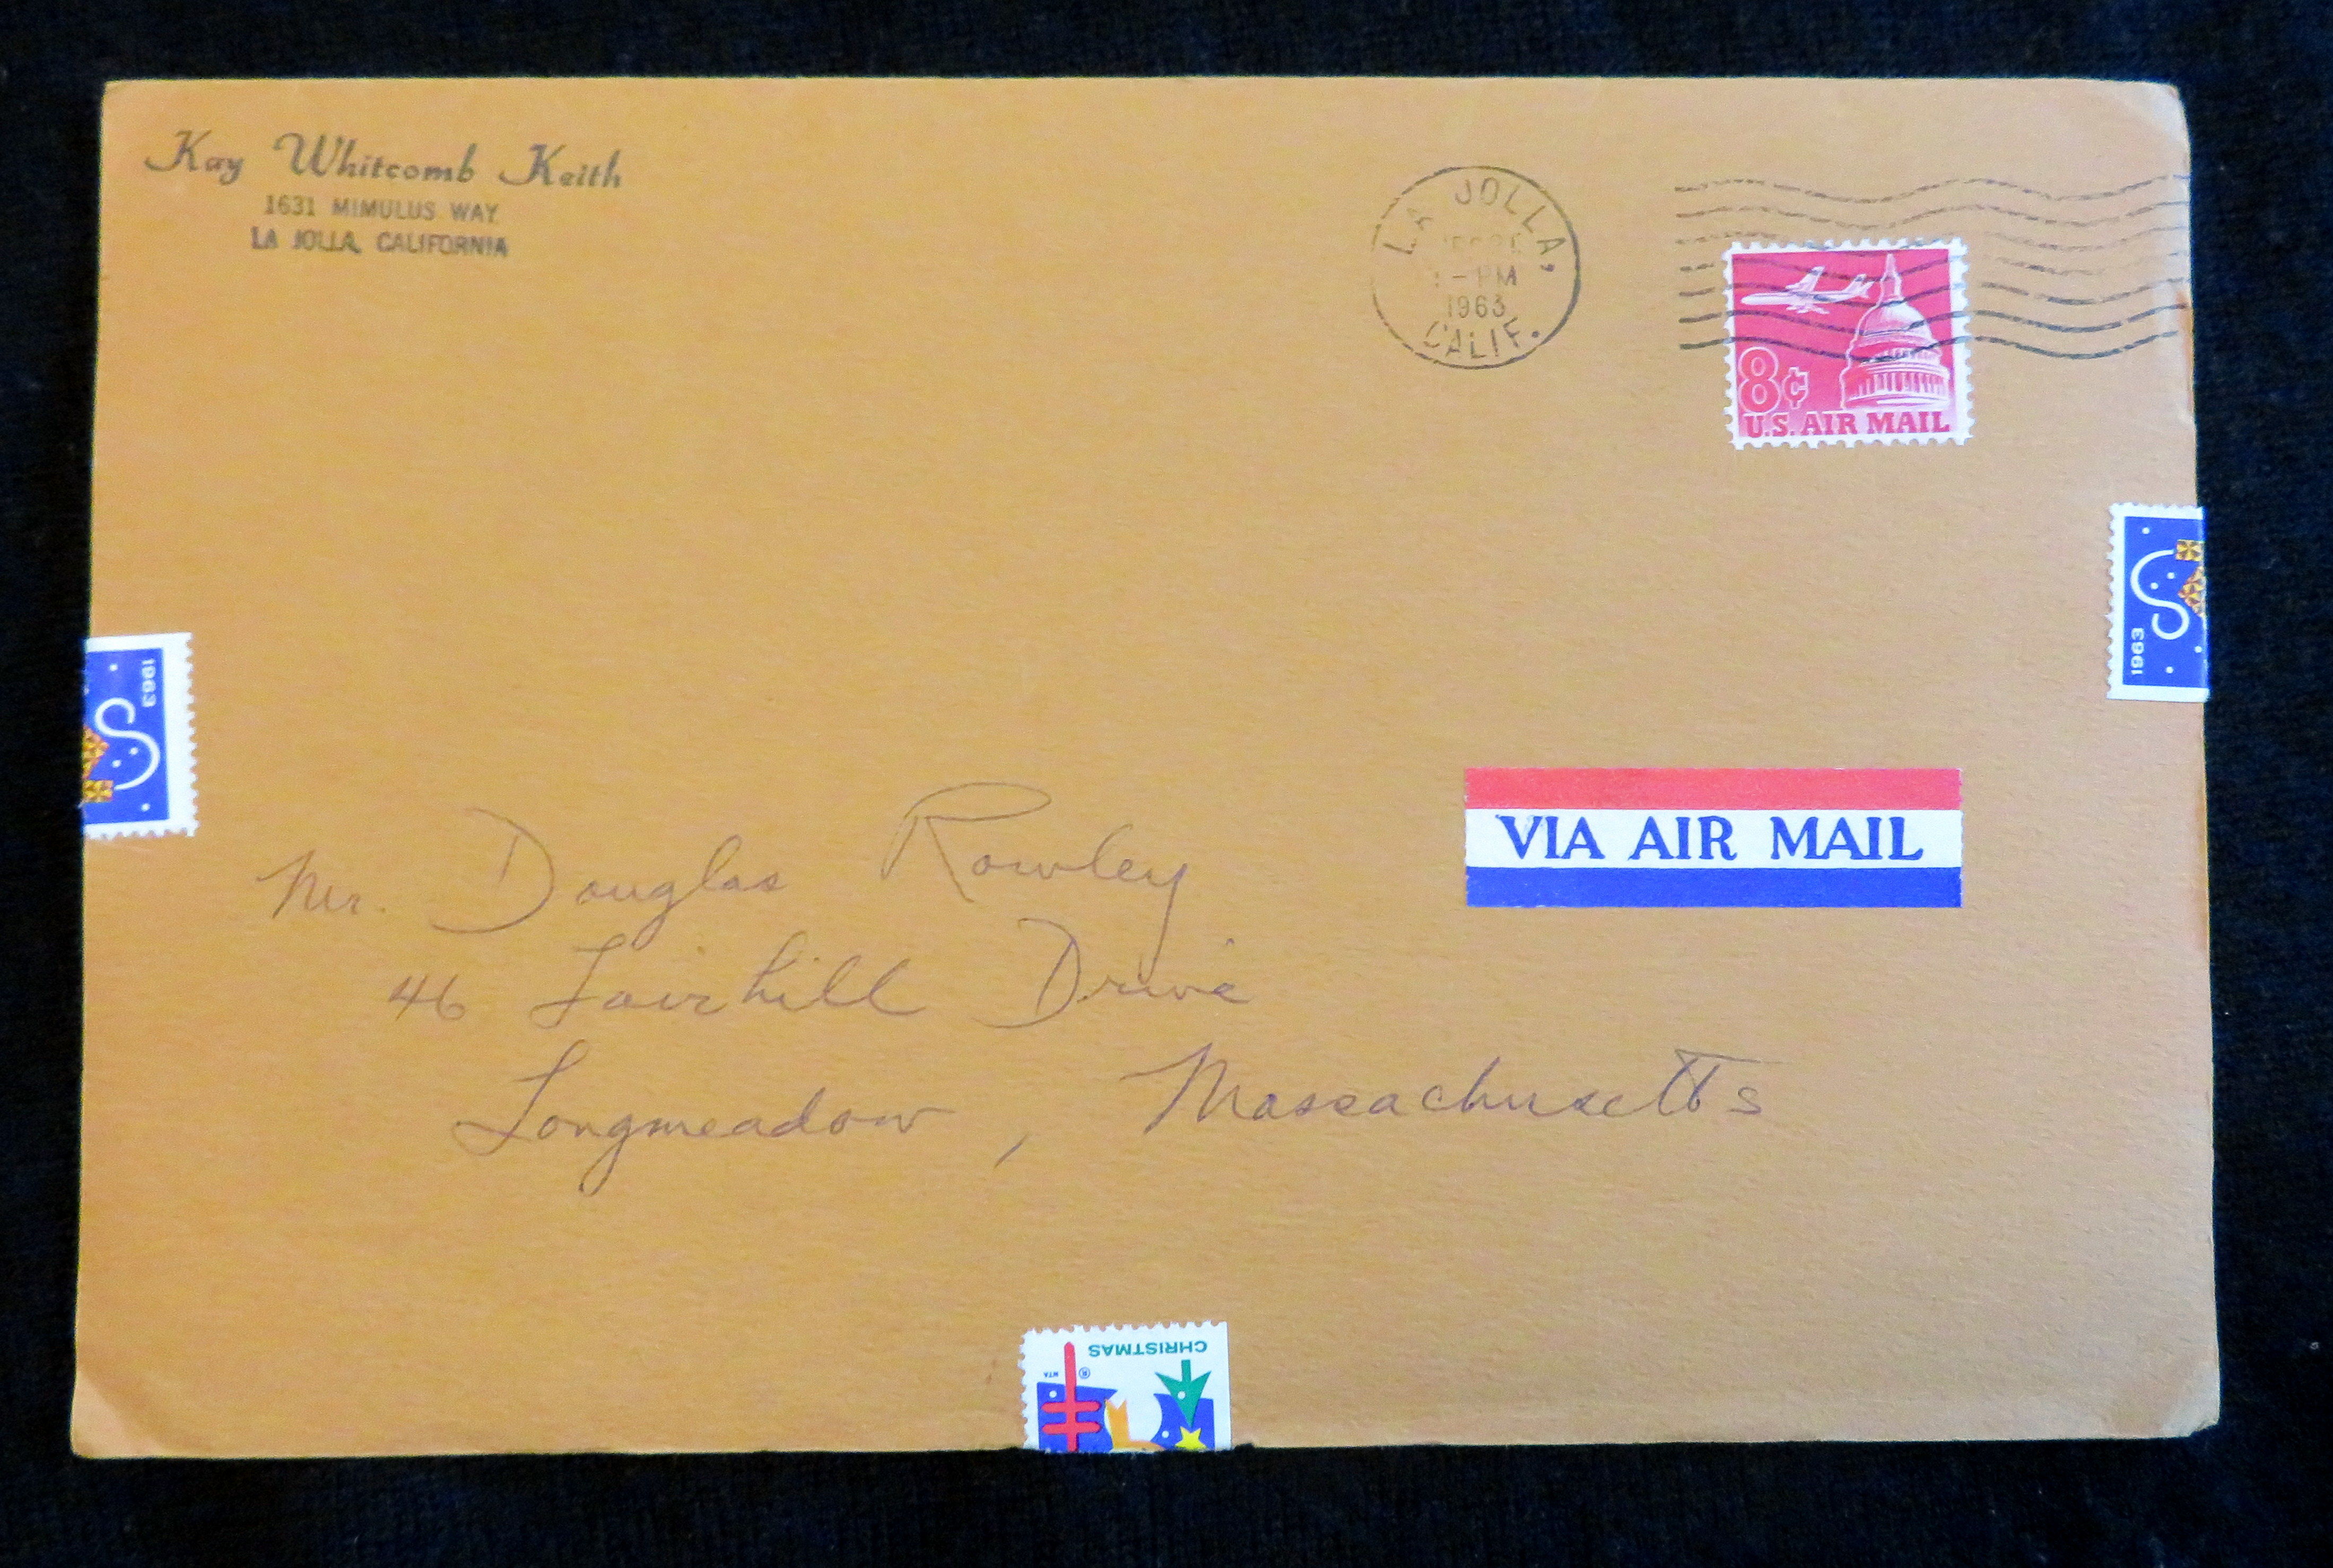 Kay Whitcomb Keith
1631 MIMULUS WAY
LA JOLLA, CALIFORNIA
LA JOLLA,
PM
1963
CALIF.
8¢
U.S. AIR MAIL
1963
S
1963
S
VIA AIR MAIL
Mr. Douglas Rowley
46 Fairhill Drive
Longmeadow, Massachusetts
CHRISTMAS
®